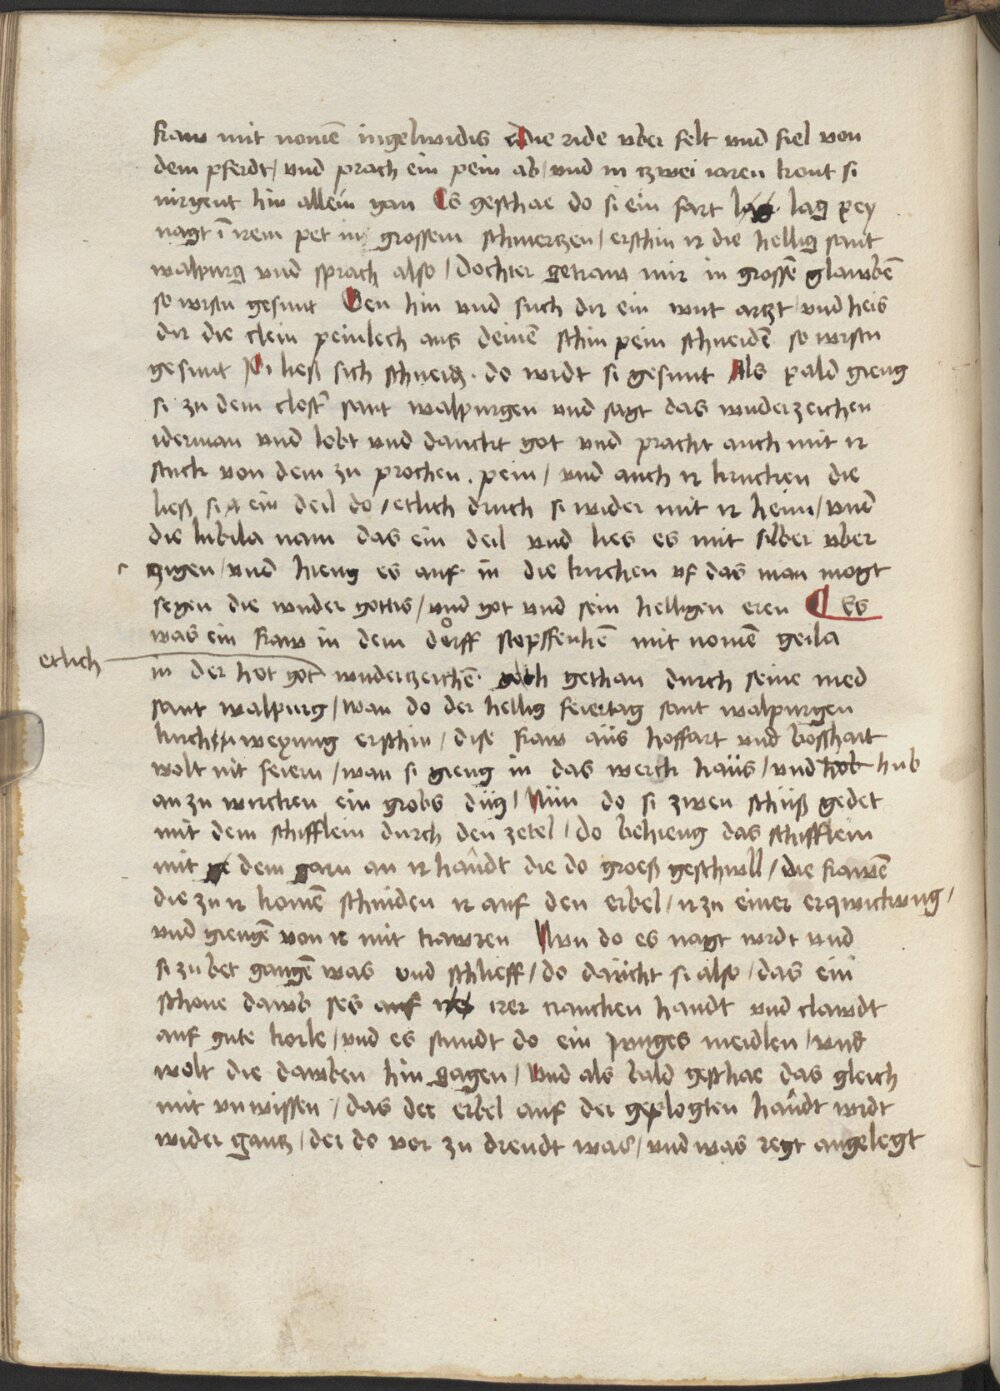 fraw mit nomē ingelwidis die ride vber felt vnd fiel von
dem pferdt / vnd prach ein pein ab / vnd in zwei iaren kont si
nirgent hin allein gan Es geschae do si ein fart lag lag pey
nagt ī irem pet in grossem schmertzen / erschin ir die hellig sant
walpurg vnd sprach also / dochter getraw mir in grossē glawbē
so wirstu gesunt Gen hin vnd such dir ein wut artzt / vnd heis
dir die clein peinlech aus deinē schin pein schneidē so wirstu
gesunt Si ließ sich schneidē . do wirdt si gesunt Als pald gieng
si zu dem clost sant walpurgen vnd sagt das wnderzeichen
iderman vnd lobt vnd danckt got vnd pracht auch mit ir
stuck von dem zu prochen . pein / vnd auch ir krucken die
ließ si ein deil do / etlich druch si wider mit ir heim / vnd
die lubila nam das ein deil vnd lies es mit silber vber
zigen / vnd hieng es auf in die kirchen vf das man mogt
segen die wnder gottis / vnd got vnd sein helligen eren Es
was ein fraw in dem dorff stopffenhē mit nomē geila
etlich
in der hot got wnderzeichē gethan durch seine med
sant walpurg / wan do der hellig feiertag sant walpurgen
kirch weyung erschin / dise fraw aüs hoffart vnd bosshait
wolt nit feiern / wan si gieng in das werch haüs / vnd hob hub
an zu wircken ein grobs düg / Nün do si zwen schüß gedet
mit dem schifflein durch den zetel / do behieng das schifflein
mit dem garn an ir handt die do groeß geschwll / die frawē
die zu ir komē schniden ir auf den erbel / ir zu einer erqwickwng /
vnd giengē von ir mit trawren Nwn do es nagt wirdt vnd
si zu bet gangē was vnd schlieff / do daücht si also / das ein
schone dawb ses auf irer krancken handt vnd clawdt
auf gute korle / vnd es stundt do ein jwnges meidlen / vnd
wolt die dawben hin gagen / Vnd als bald geschae das gleich
mit vnwissen / das der erbel auf der geplogten handt wirdt
wider gantz / der do vor zu drendt was / vnd was regt angelegt